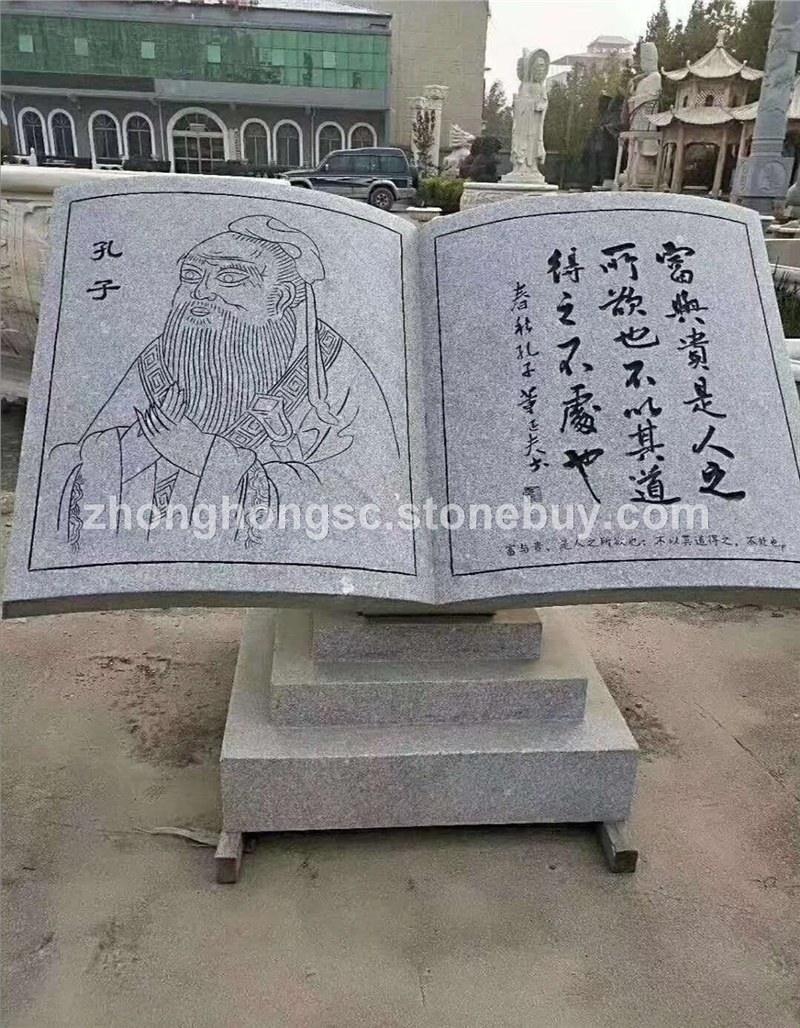 孔子
富與貴是人之
所欲也不以其道
得之不處也
春秋孔子
富与贵，是人之所欲也；不以其道得之，不处也。
zhonghongsc.stonebuy.com